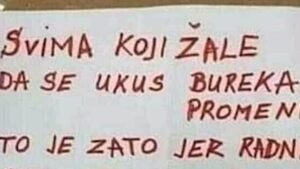 SVIMA KOJI ŽALE
DA SE UKUS BUREKA
PROMENI
TO JE ZATO JER RADN